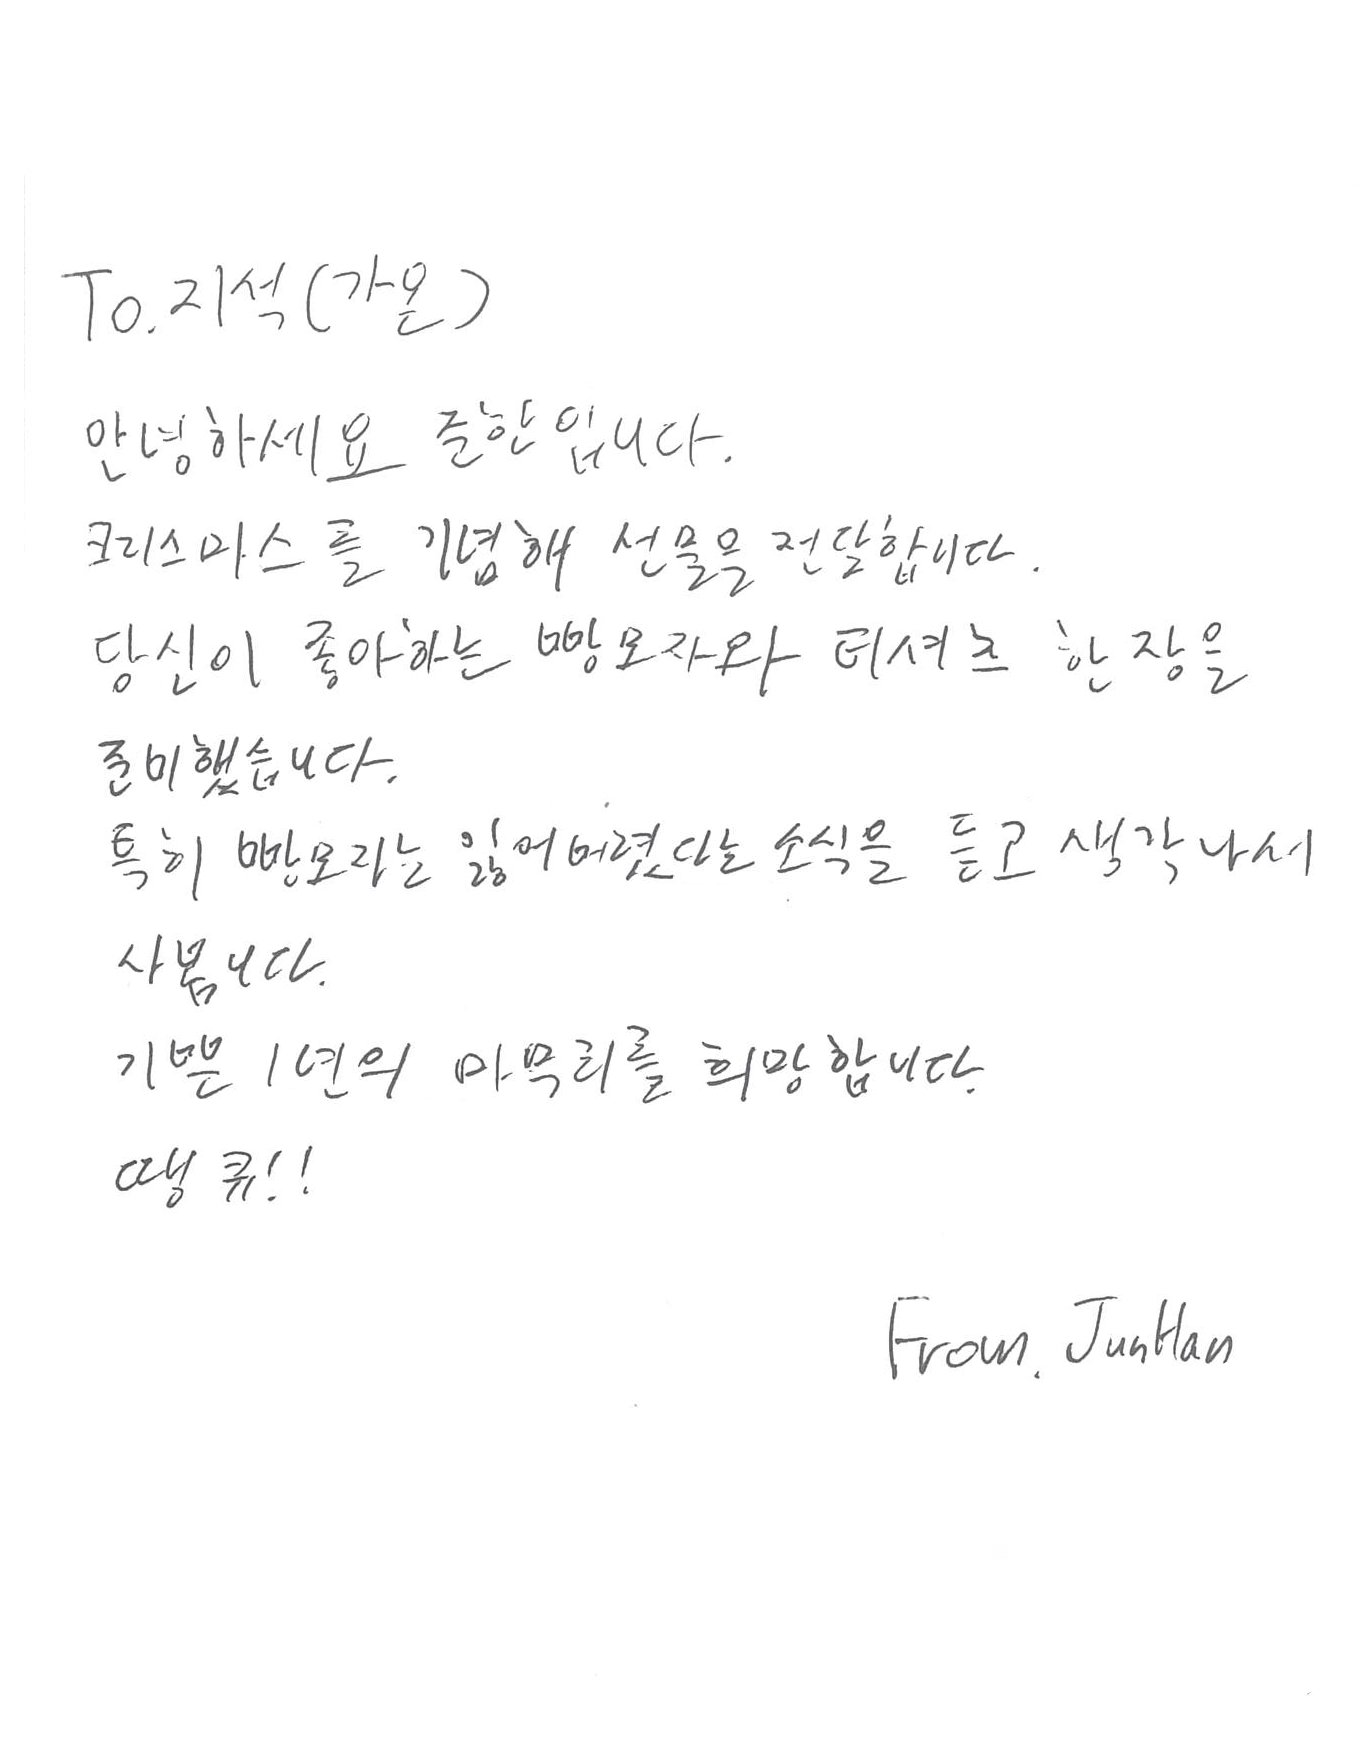 To. 지석(가온)
안녕하세요 준한입니다.
크리스마스를 기념해 선물을 전달합니다.
당신이 좋아하는 빵모자와 티셔츠 한장을
준비했습니다.
특히 빵모자는 잃어버렸다는 소식을 듣고 생각나서
사봅니다.
기쁜 1년의 마무리를 희망합니다.
땡큐!!
From. JunHan